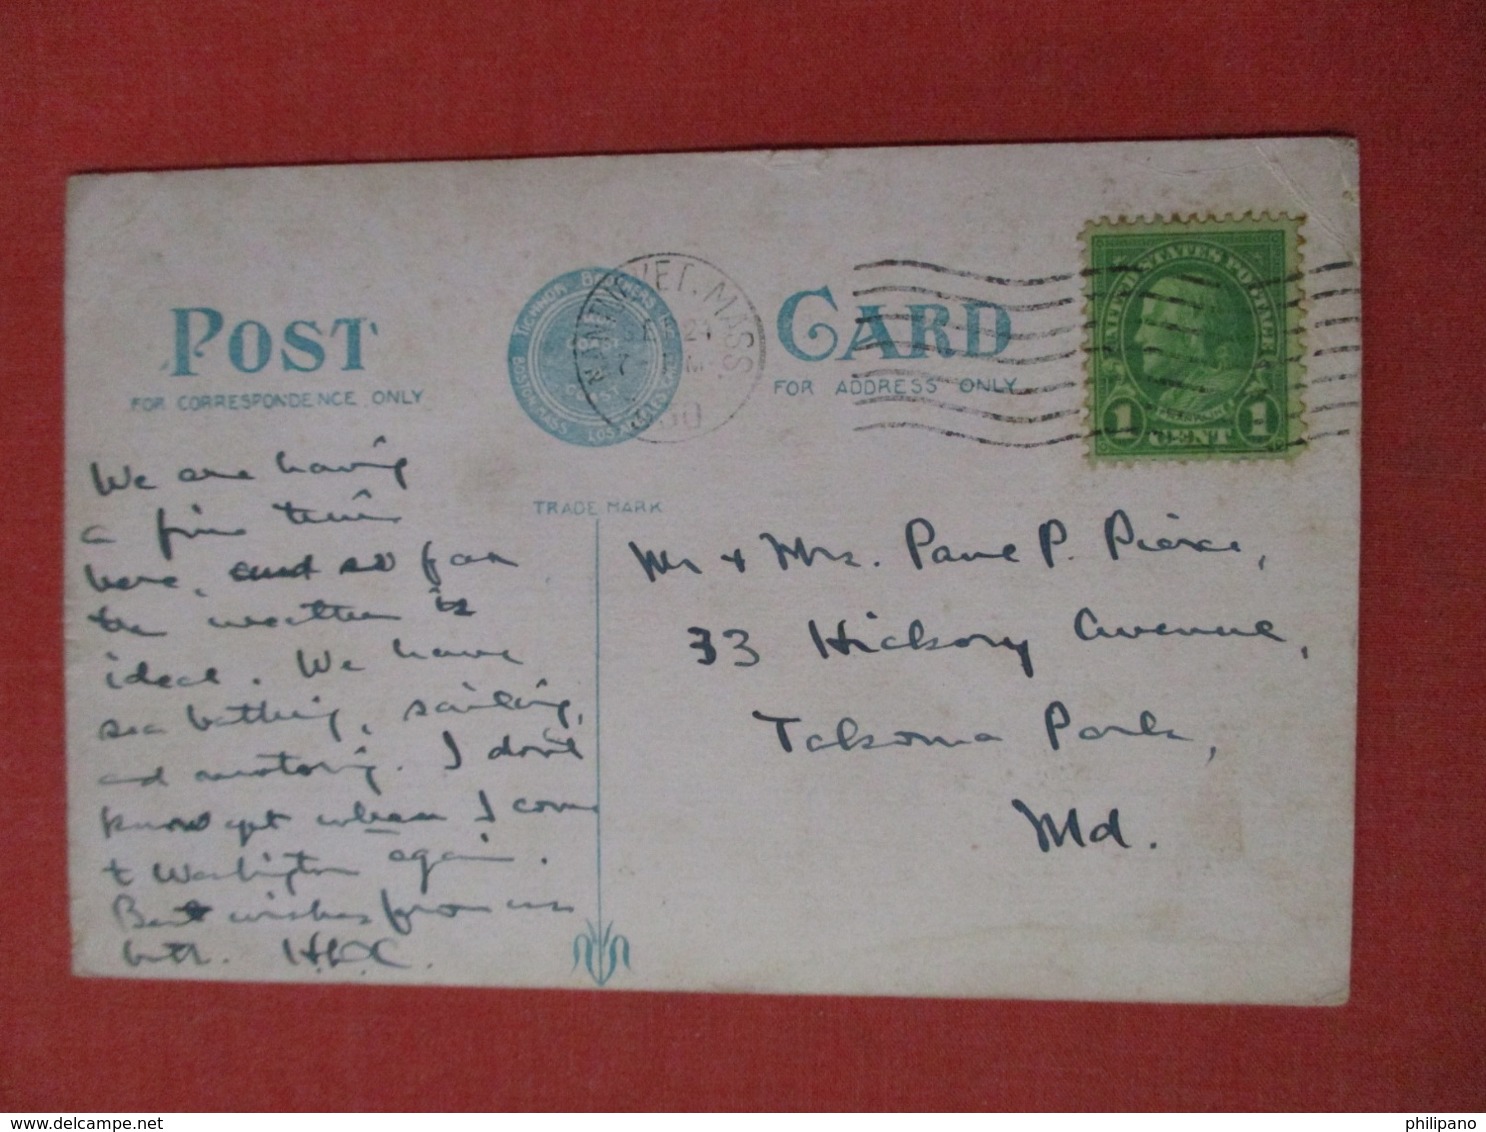 POST CARD
FOR CORRESPONDENCE ONLY
FOR ADDRESS ONLY
BOSTON, MASS. LOS ANGELES
TRADE MARK
NANTUCKET. MASS.
21
30
UNITED STATES POSTAGE
FRANKLIN
1 CENT 1
We are having
a fine time
here, and so far
the weather is
ideal. We have
sea bathing, sailing,
and motoring. I don't
know yet when I come
to Washington again.
Best wishes from us
both. H.L.C.
Mr & Mrs. P. Pierce,
33 Hickory Avenue,
Takoma Park,
Md.
delcampe.net
philipano